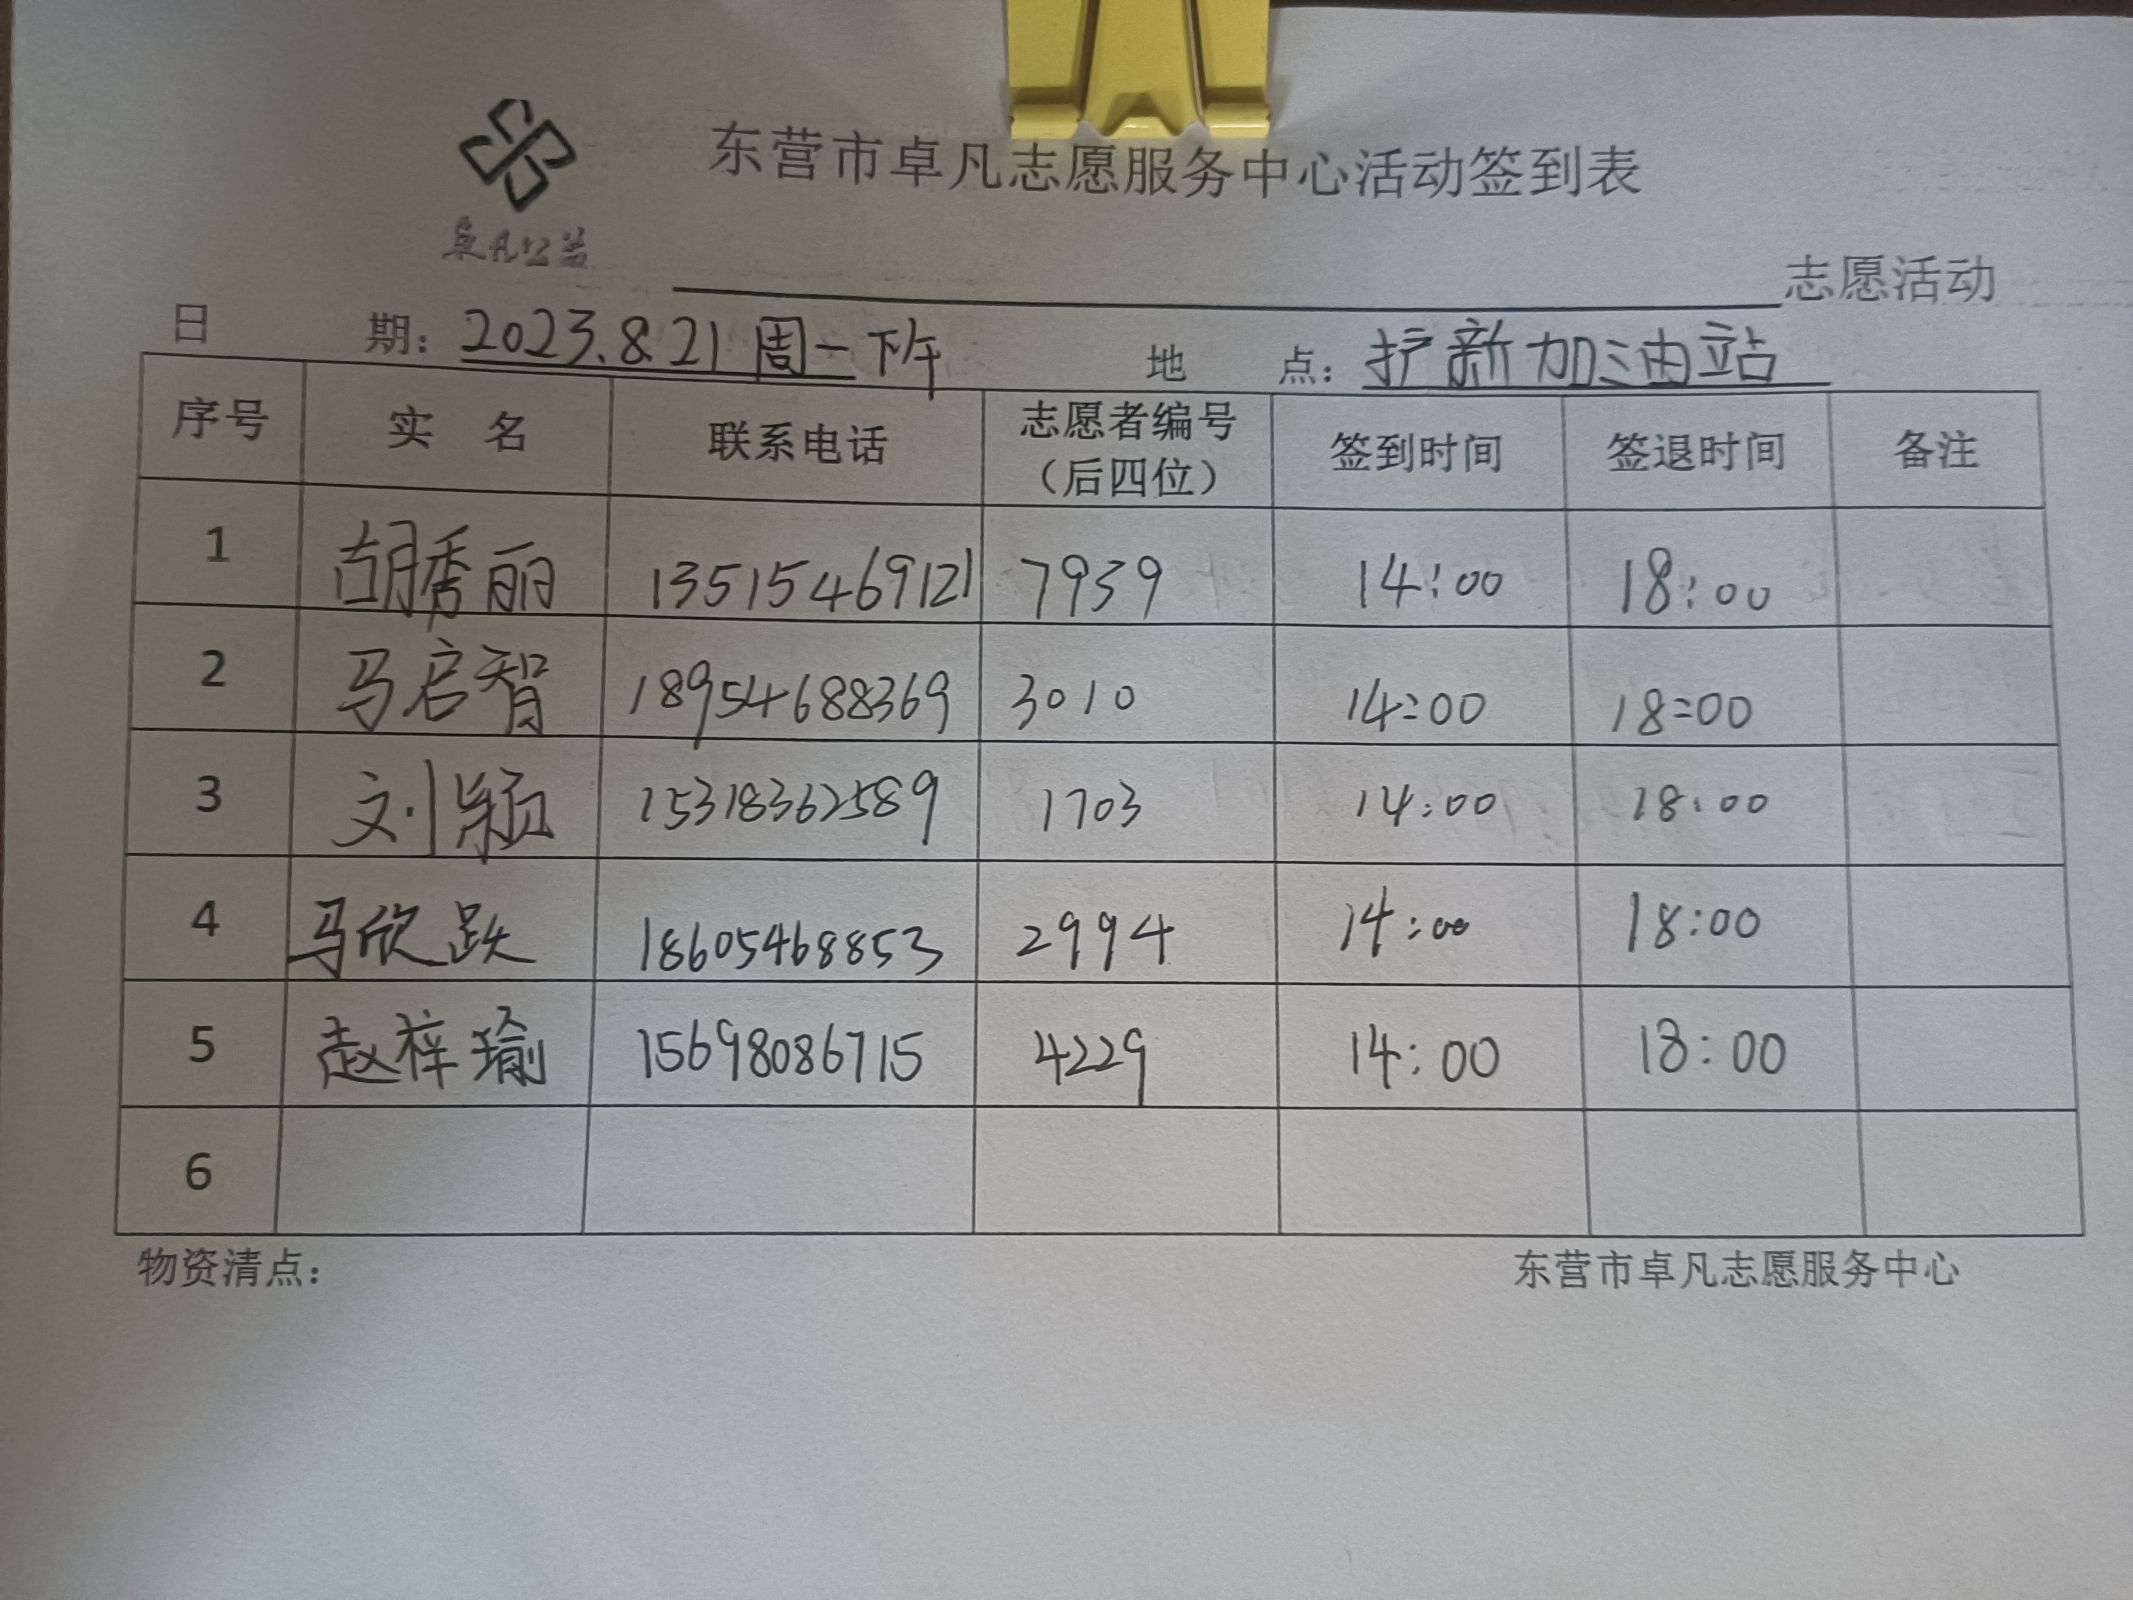 东营市卓凡志愿服务中心活动签到表
卓凡公益
志愿活动
日 期：2023.8.21 周一下午 地 点：护新加油站
序号 实 名 联系电话 志愿者编号（后四位） 签到时间 签退时间 备注
1 胡秀丽 13515469121 7939 14:00 18:00
2 马启智 18954688369 3010 14:00 18:00
3 刘颖 15318362589 1703 14:00 18:00
4 马欣跃 18605468853 2994 14:00 18:00
5 赵梓瑜 15698086715 4229 14:00 18:00
6
物资清点： 东营市卓凡志愿服务中心